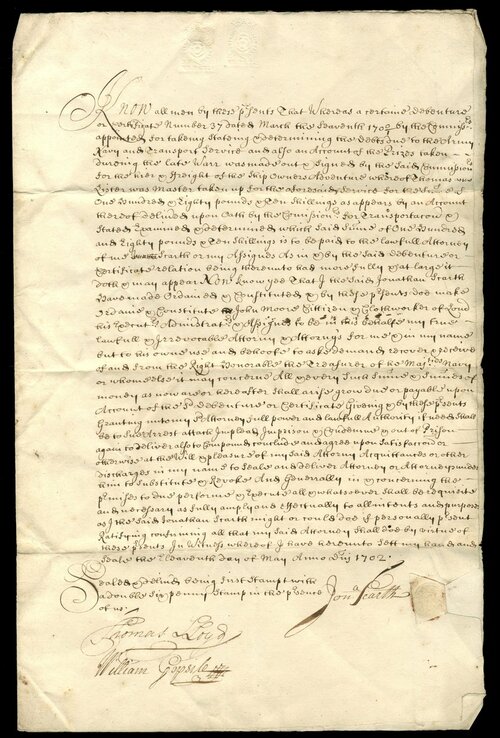 Know all men by these p'sents That Whereas a certaine debenture
or Certificate Number 37 dated March the Seaventh 1702 by the Commiss:rs
appointed for takeing Stateing & determining the debts due to the Army
Navy and Transport Service and also an Account of the Prizes taken
dureing the Late Warr was made out & Signed by the Said Commission:rs
for the hier & freight of the Ship Owners Adventure whereof Thomas
Lister was Master taken up for the aforesaid Service for the Sume of
One hundred & Eighty pounds & Ten Shillings as appears by an Account
thereof delivered upon Oath by the Comission:rs for Transportacon &
Stated Examined & determined which Said Sume of One hundred
and Eighty pounds & Ten Shillings is to be paid to the lawfull Attorney
of me Scarth or my Assignes As in & by the Said debenture or
Certificate relation being thereunto had more fully & at large it
doth & may appear Now know yee That I the Said Jonathan Scarth
have made Ordained & Constituted & by these p'sents doe make
Ordaine & Constitute John Moore Cittizen & Clothworker of Lond:
his Execut:rs Administrat:rs & Assignes to be in this behalfe my true
Lawfull & Irrevocable Attorny & Attornys for me & in my name
but to his owne use and behoofe to aske demand recover & receive
of and from the Right Honorable the Treasurer of the Maj:ties Navy
or whome else it may concerne All & every Such Sume & Sumes of
money as now are or hereafter Shall arise grow due or payable upon
Account of the S:d debenture or Certificate Giveing & by these p'sents
Granting unto my Attorny full power and lawfull Authority if need Shall
be to Sue Arrest attach Implead Imprison & Condemne & out of Prison
again to deliver also to Compound conclude and agree upon Satisfaccon or
otherwise at the Will & pleasure of my Said Attorny Acquittances or other
discharges in my name to Seale and deliver Attorney or Attorneys under
him to Substitute & Revoke And Generally in & concerning the
p'mises to doe performe & Execute all & whatsoever Shall be requisite
and necessary as fully amply and effectually to all intents and purposes
as I the Said Jonathan Scarth might or could doe if personally p'sent
Ratifying confirming all that my Said Attorny Shall doe by virtue of
these p'sents In Witness whereof I have hereunto Sett my hand and
Seale the Eleaventh day of May Anno D:ni 1702.
Sealed & deliv:d being first Stampt with
a double Six penny Stamp in the p'sence
of us.
Jon:a Scarth
Thomas Lloyd
William